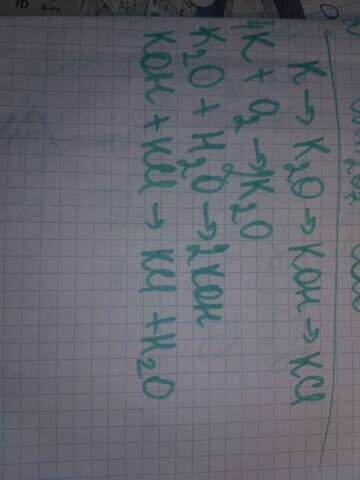 K → K₂O → KOH → KCl
4K + O₂ → 2K₂O
K₂O + H₂O → 2KOH
KOH + HCl → KCl + H₂O